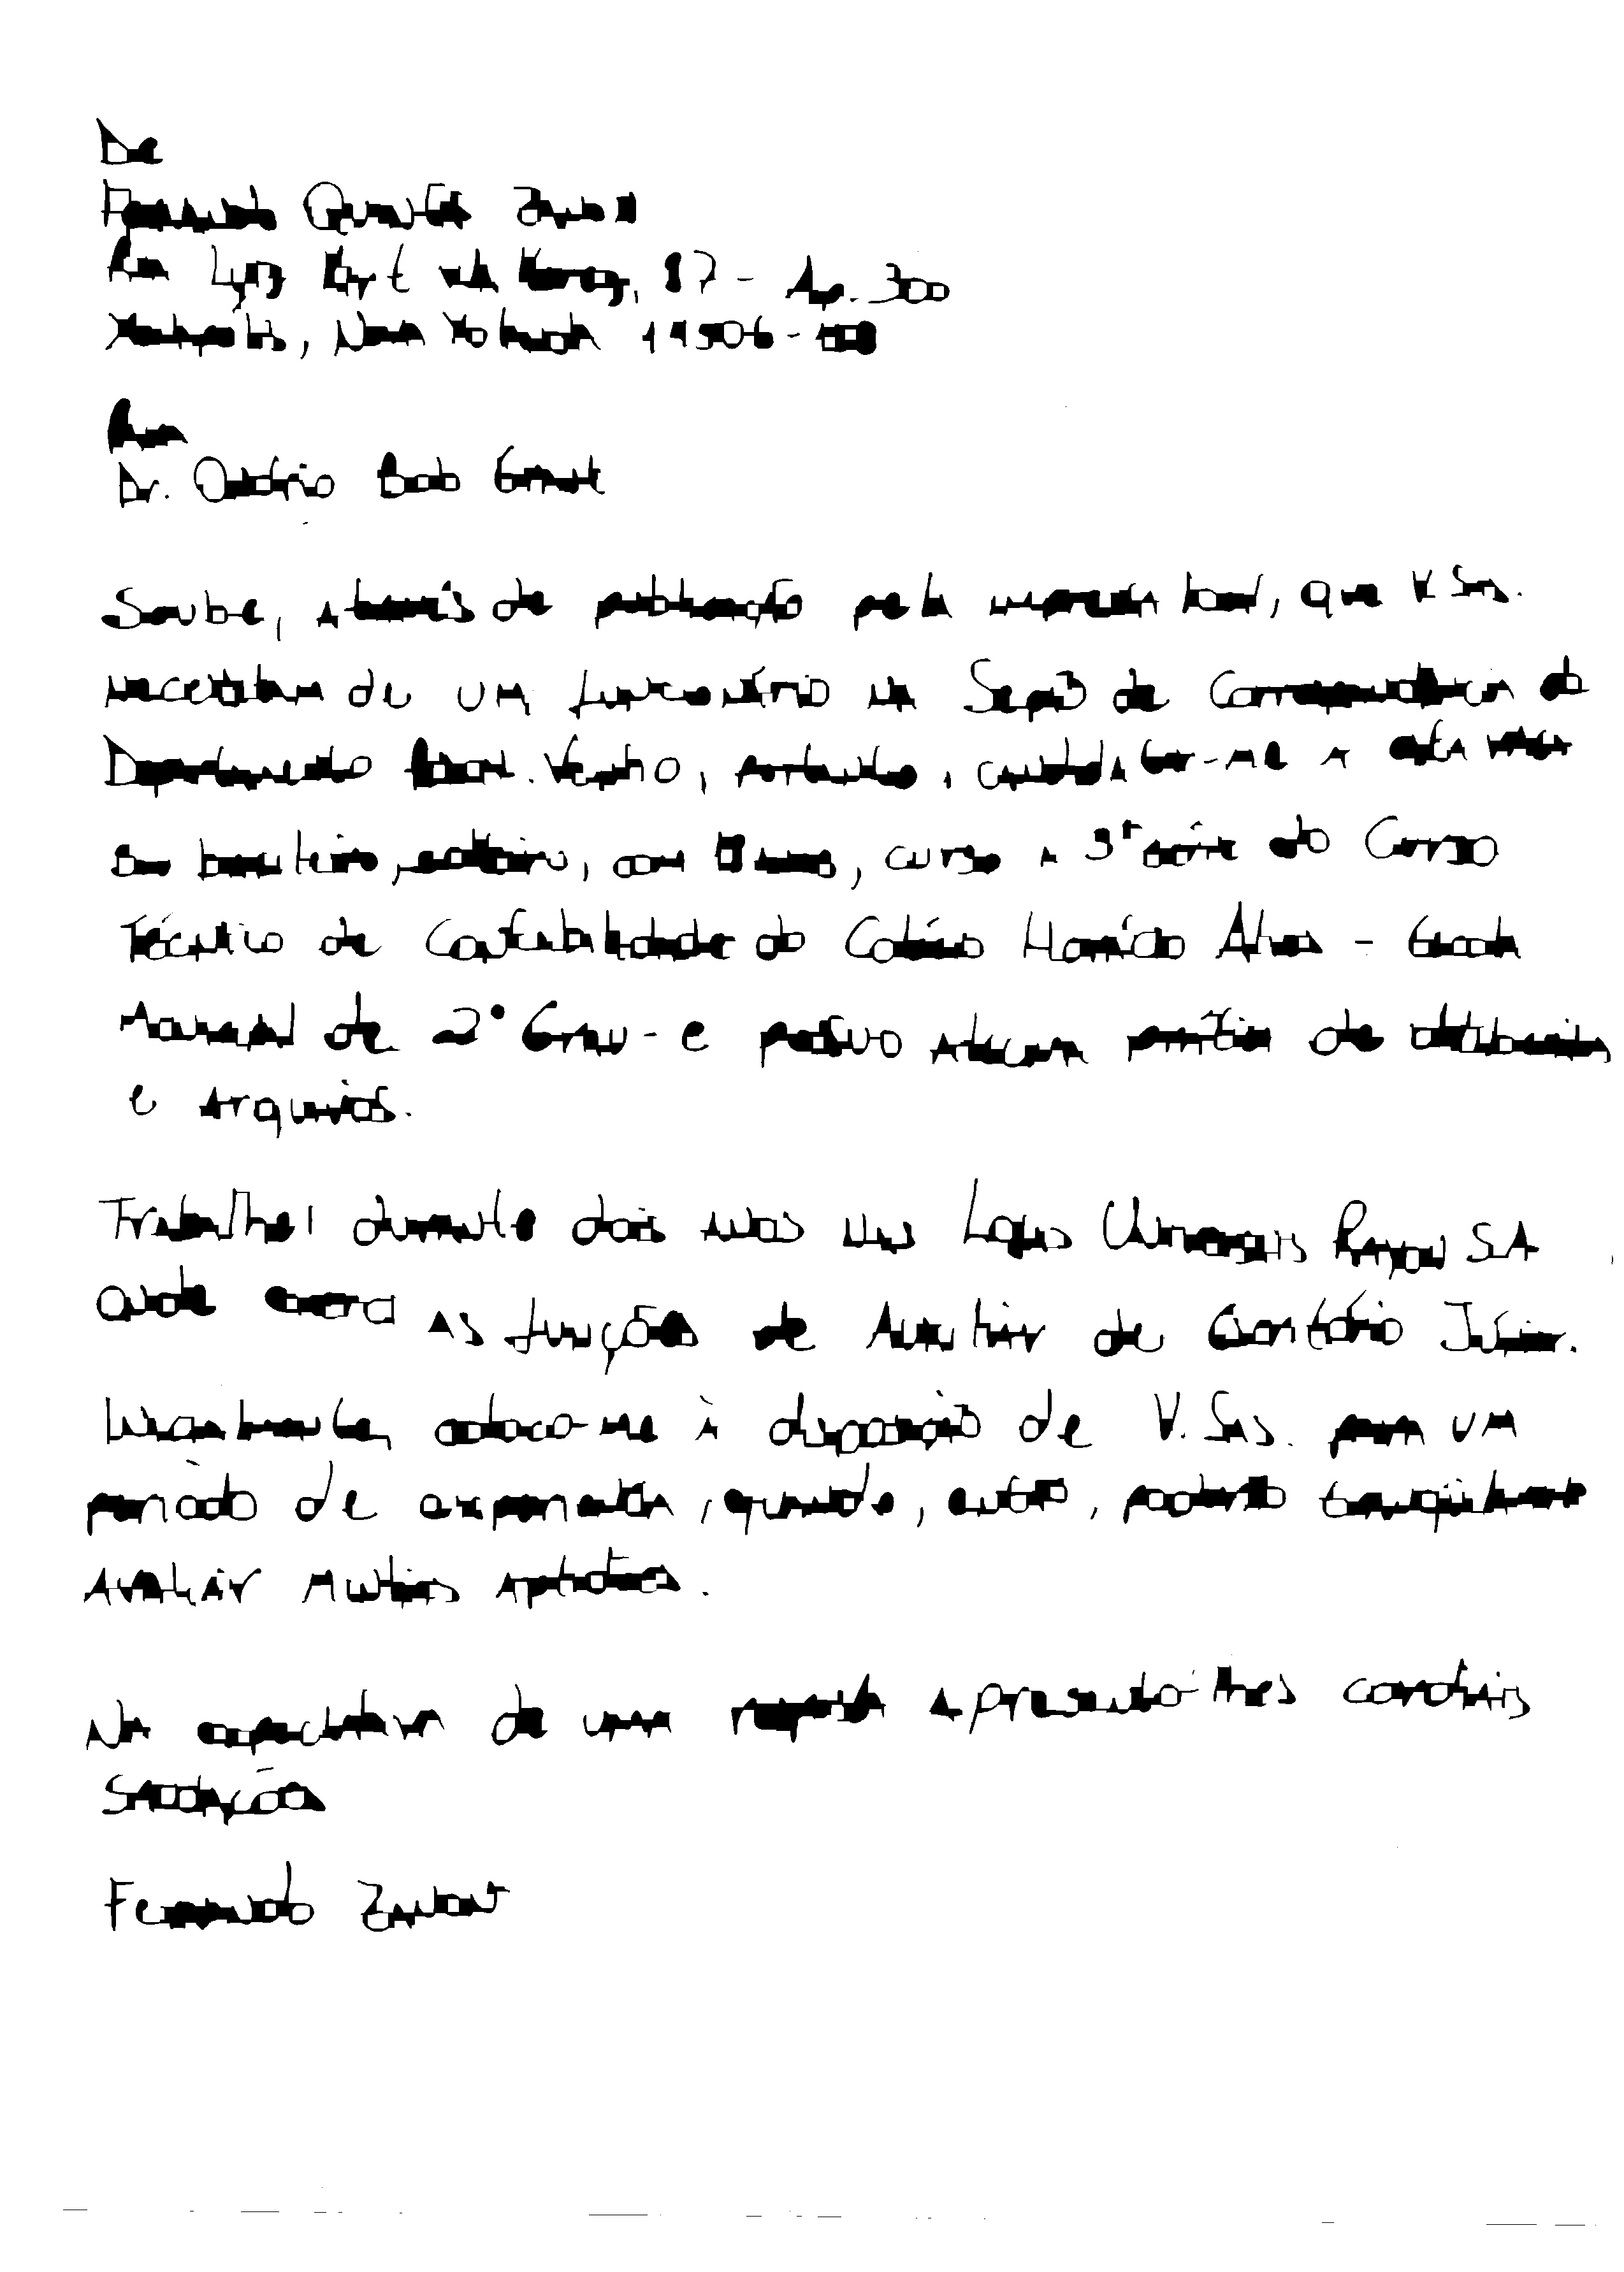 De
Fernando Quarto
Rua 87 - Ap. 300
Nova 19506-
Para
Dr. Bob
Soube, através de publicação pela imprensa local, que V. Sas.
necessitam de um funcionário na Seção de Correspondência do
Departamento Venho, portanto, candidatar-me a esta vaga
Sou brasileiro, solteiro, com anos, curso a 3ª série do Curso
Técnico de Contabilidade do Colégio Alves - Escola
de 2º Grau - e possuo alguma prática de datilografia
e arquivos.
Trabalhei durante dois anos nas Lojas S.A
onde exerci as funções de Auxiliar de Escritório Júnior.
coloco-me à disposição de V. Sas. para um
período de experiência, quando, então, poderão
avaliar minhas aptidões.
Na expectativa de uma resposta apresento-lhes cordiais
saudações
Fernando